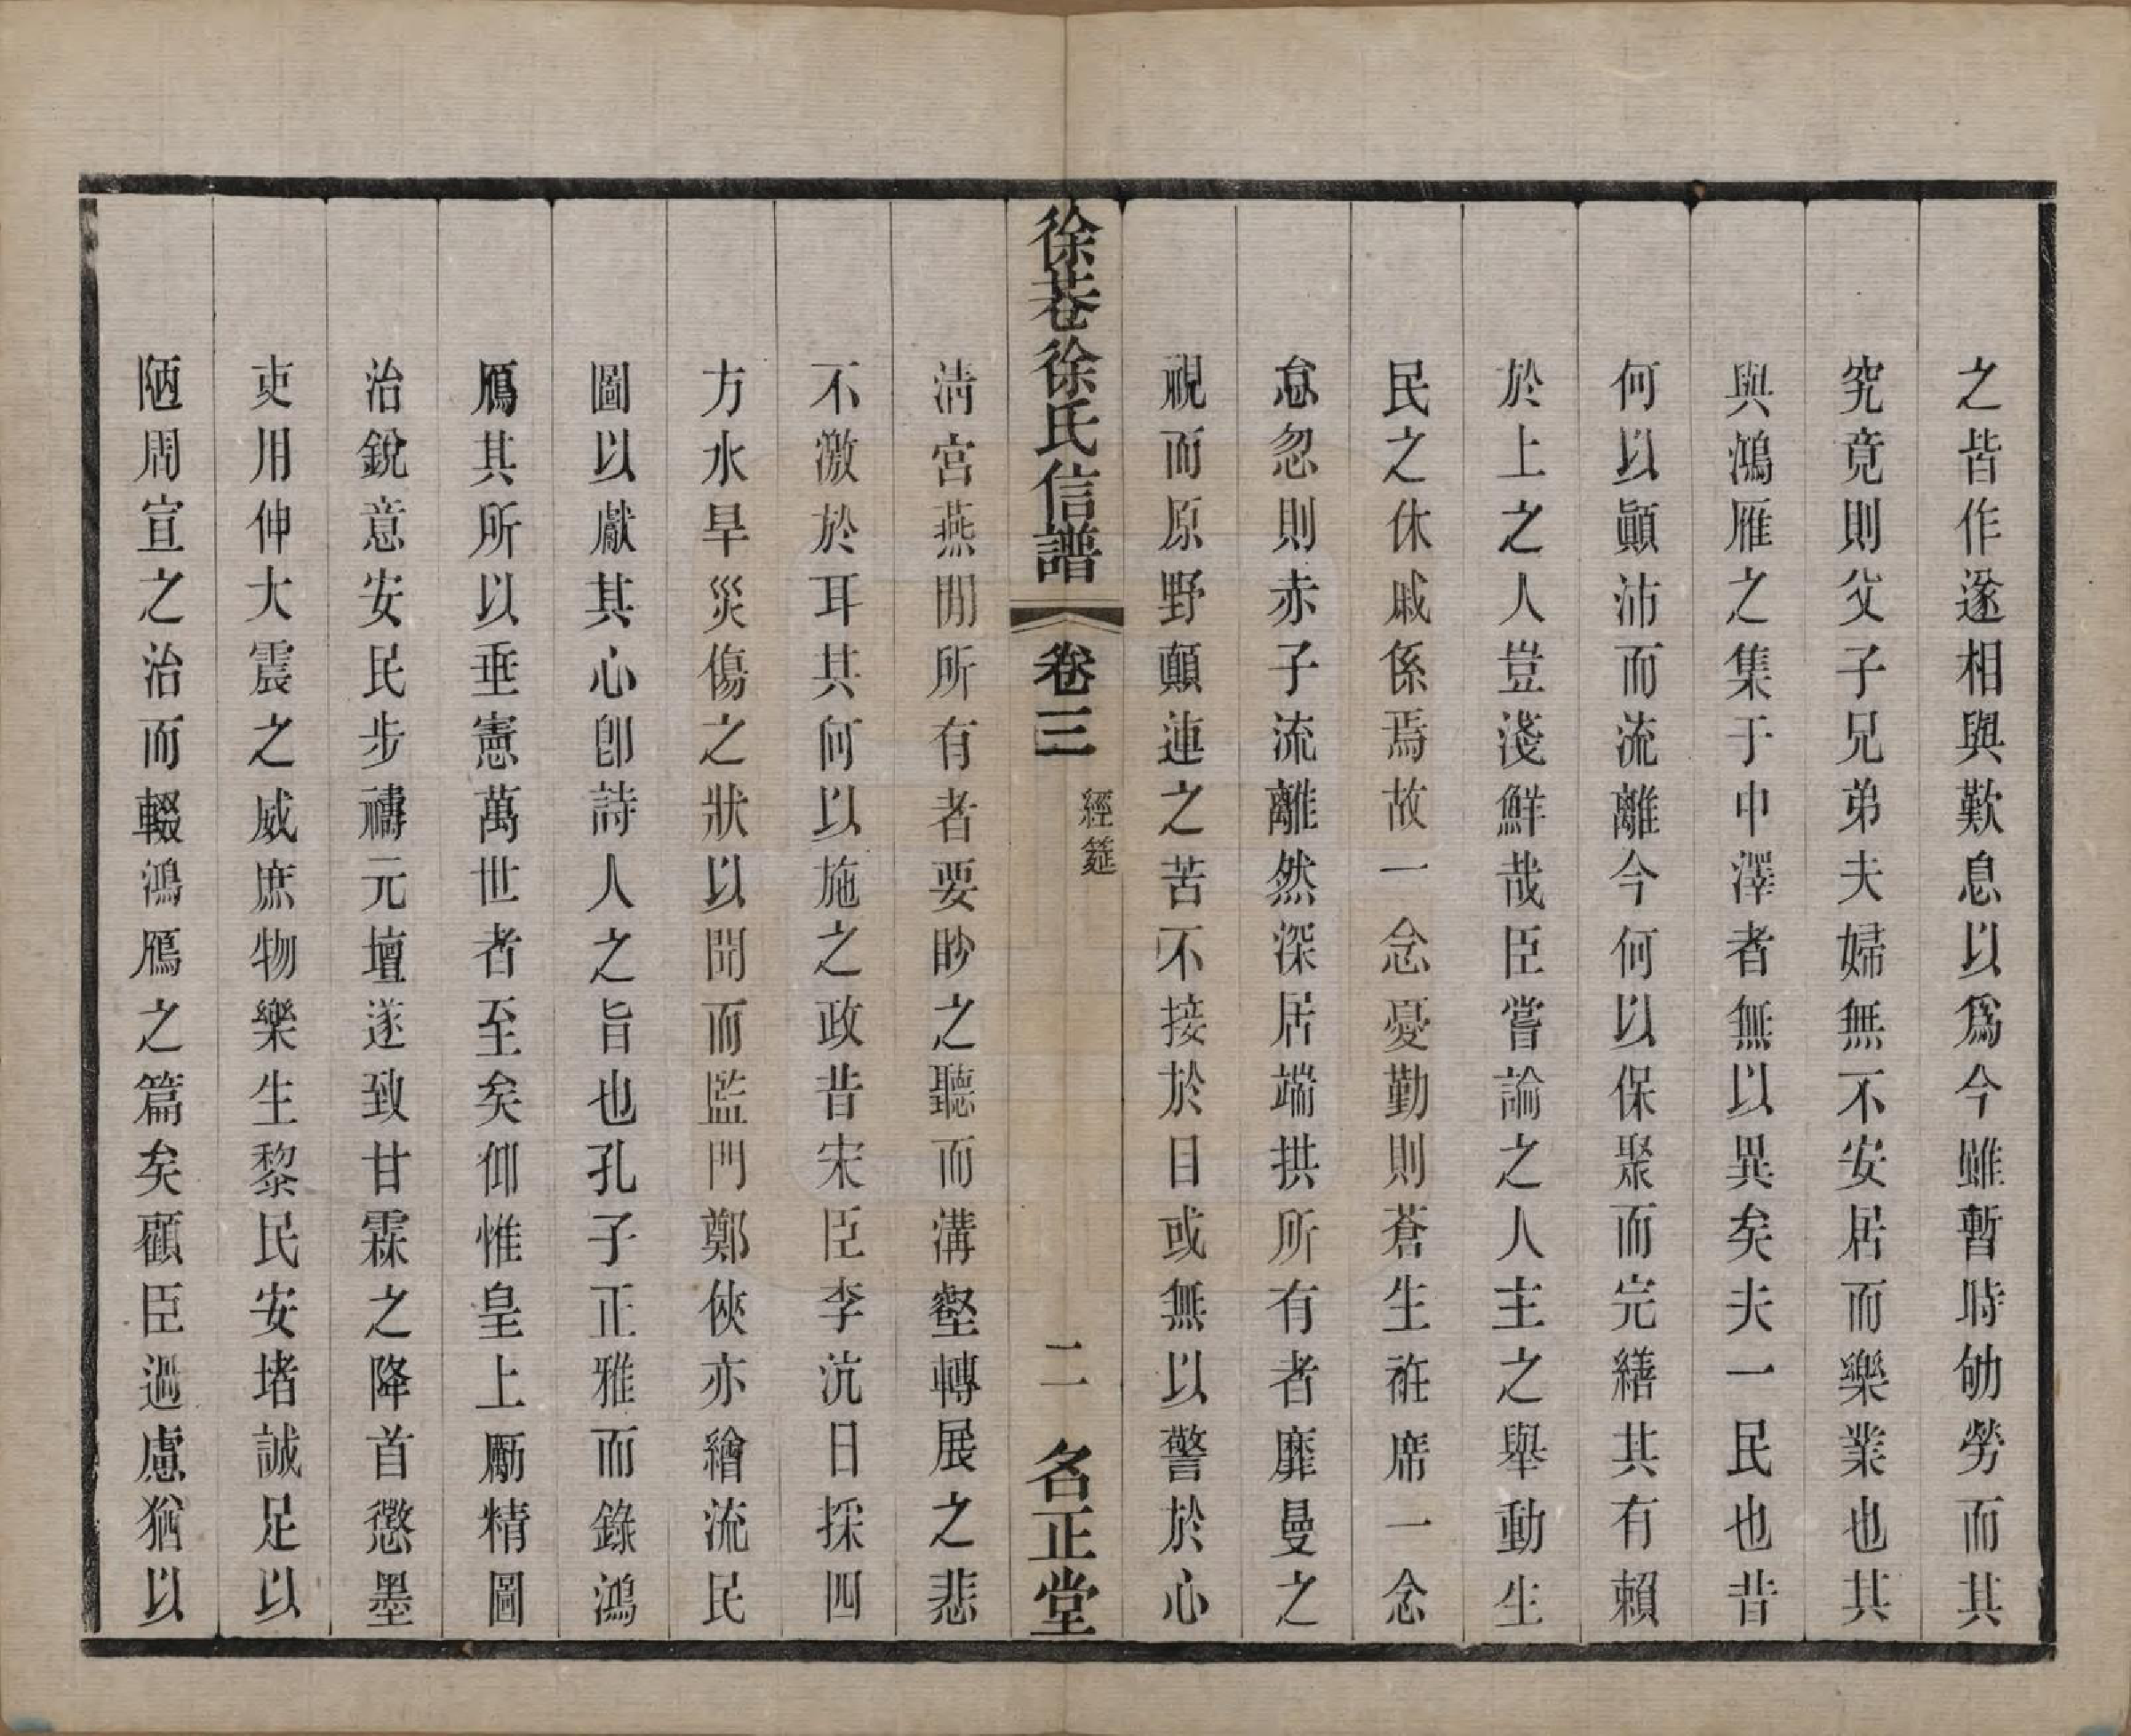 之皆作遂相與歎息以爲今雖暫時劬勞而其
究竟則父子兄弟夫婦無不安居而樂業也其
與鴻雁之集于中澤者無以異矣夫一民也昔
何以顚沛而流離今何以保聚而完繕其有賴
於上之人豈淺鮮哉臣嘗論之人主之舉動生
民之休戚係焉故一念憂勤則蒼生袵席一念
怠忽則赤子流離然深居端拱所有者靡曼之
視而原野顚連之苦不接於目或無以警於心
徐巷徐氏信譜 卷三 經筵 二 名正堂
淸宮燕閒所有者要眇之聽而溝壑轉展之悲
不激於耳其何以施之政昔宋臣李沆日採四
方水旱災傷之狀以聞而監門鄭俠亦繪流民
圖以獻其心卽詩人之旨也孔子正雅而錄鴻
鴈其所以垂憲萬世者至矣仰惟皇上勵精圖
治銳意安民步禱元壇遂致甘霖之降首懲墨
吏用伸大震之威庶物樂生黎民安堵誠足以
陋周宣之治而輟鴻鴈之篇矣顧臣過慮猶以